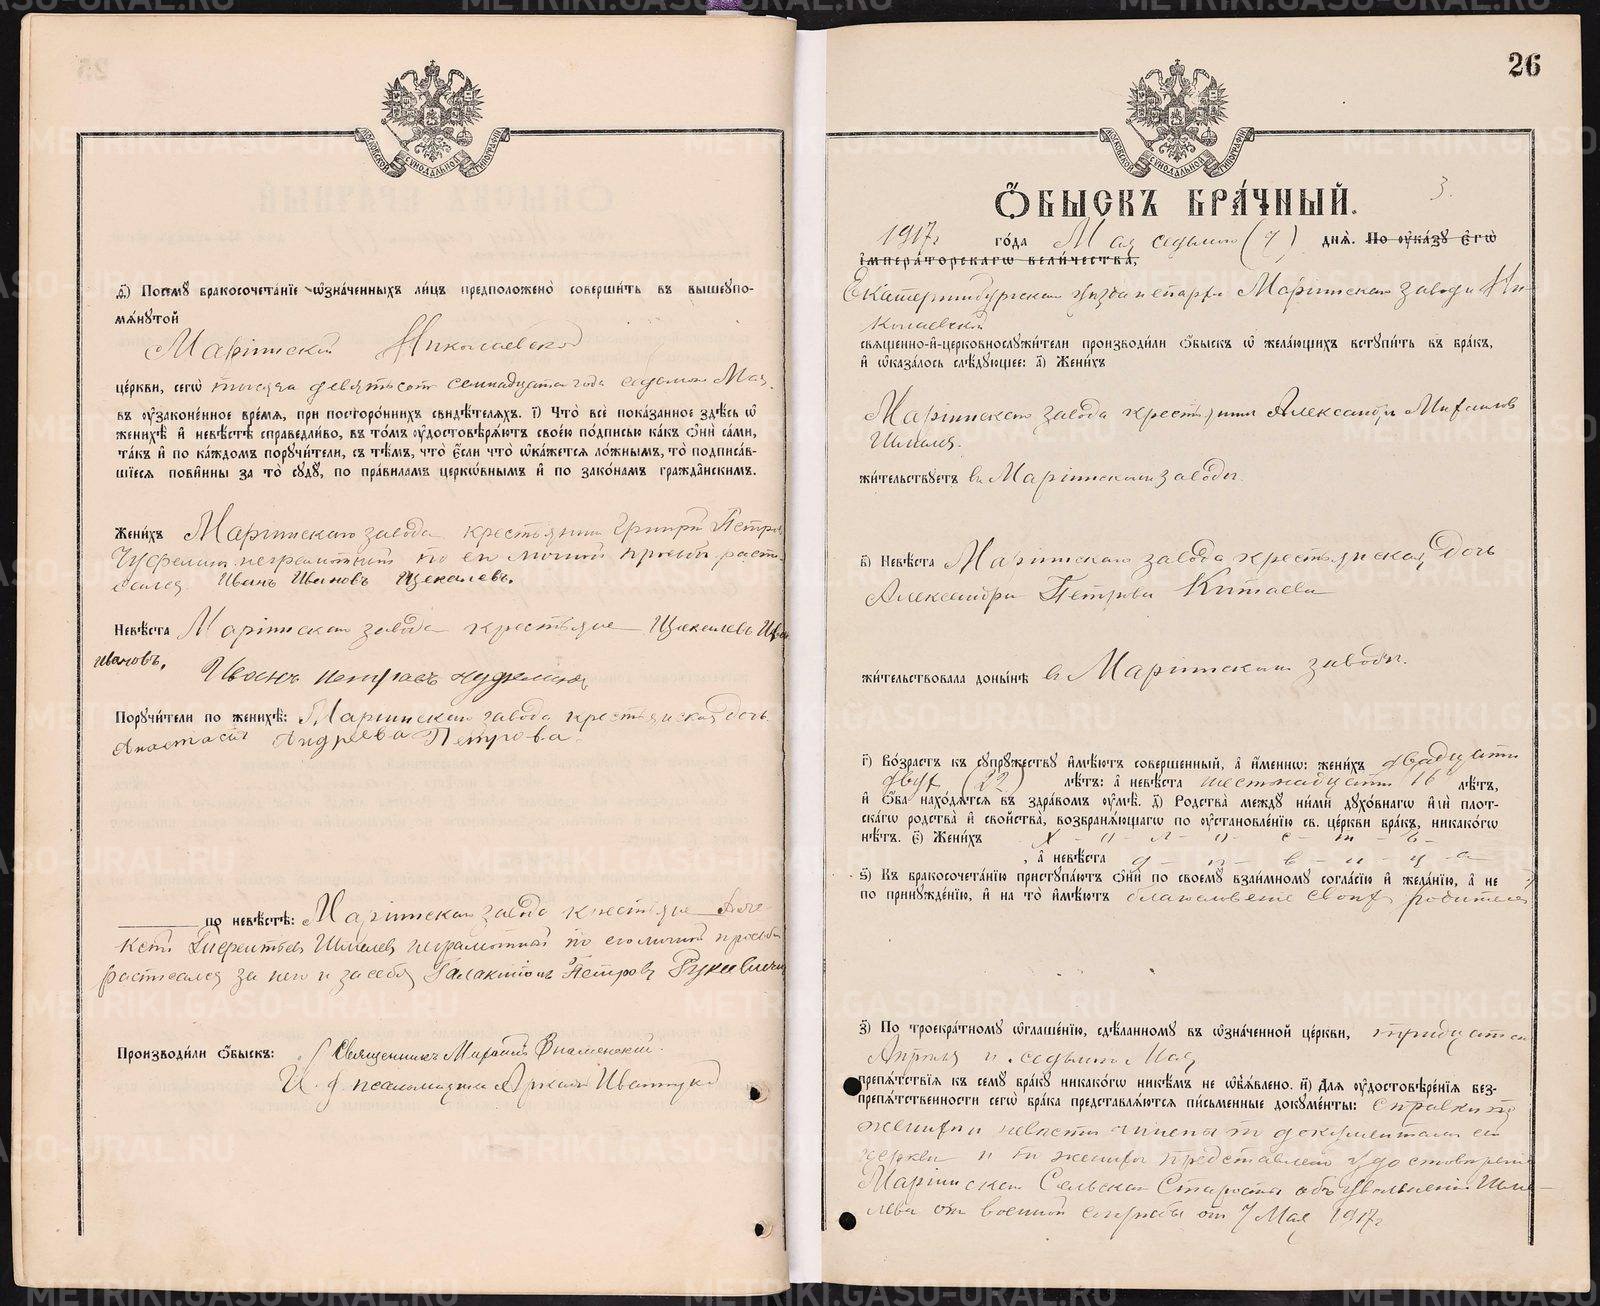 д҃) Посему бракосочетаніе ѡзначенныхъ лицъ предположено совершить въ вышеупо-
мянутой
Маріинской Николаевской
церкви, сегѡ тысяча девятьсотъ семнадцатаго года седьмого Мая
въ оузаконенное время, при постороннихъ свидѣтеляхъ. і҃) Что все показанное здѣсь ѡ
женихѣ и невѣстѣ справедливо, въ томъ оудостовѣряютъ своею подписью какъ ѻни сами,
такъ и по каждомъ поручители, съ тѣмъ, что если что ѡкажется ложнымъ, то подписав-
шіеся повинны за то суду, по правиламъ церкѡвнымъ и по законамъ гражданскимъ.
Женихъ Маріинскаго завода крестьянинъ Петровъ
неграмотный по его личной просьбѣ распи-
сался Иванъ Ивановъ Щекалевъ.
Невѣста Маріинскаго завода крестьяне Щекалевъ Иван
Ивановъ. Иванъ Петровъ
Поручители по женихѣ: Маріинскаго завода крестьянская дочь
Анастасія Андреева Петрова.
по невѣстѣ: Маріинскаго завода крестьяне Але-
ксѣй Терентьевъ Шмелевъ неграмотный по его личной просьбѣ
расписался за него и за себя Галактіонъ Петровъ
Производили ѻбыскъ: Священникъ Михаилъ Знаменскій.
И. д. псаломщика Аркадій
26
3.
Ѻбыскъ брачный.
1917г года Мая седьмого (7) дня. По оуказу Егѡ
Императорскагѡ Величества,
Екатеринбургской уѣзда и епархіи Маріинскаго завода Ни-
колаевской
священно-и-церковнослужители производили ѻбыскъ ѡ желающихъ вступить въ бракъ,
и ѡказалось слѣдующее: а҃) Женихъ
Маріинскаго завода крестьянинъ Александръ Михаиловъ
Шмелевъ.
жительствуетъ въ Маріинскомъ заводѣ.
в҃) Невѣста Маріинскаго завода крестьянская дочь
Александра Петрова Китаева
жительствовала донынѣ въ Маріинскомъ заводѣ.
г҃) Возрастъ къ супружеству имѣютъ совершенный, а именнѡ: женихъ двадцати
двухъ (22) лѣтъ: а невѣста шестнадцати 16 лѣтъ,
и ѻба находятся въ здравомъ оумѣ. д҃) Родства между ними духовнагѡ или плот-
скагѡ родства и свойства, возбраняющагѡ по оустановленію св. церкви бракъ, никакогѡ
нѣтъ. є҃) Женихъ х-о-л-о-с-т-ъ-
, а невѣста д-ѣ-в-и-ц-а-
ѕ҃) Къ бракосочетанію приступаютъ ѻни по своему взаимному согласію и желанію, а не
по принужденію, и на то имѣютъ благословеніе своихъ родителей
з҃) По троекратному ѡглашенію, сдѣланному въ ѡзначенной церкви, тридцатаго
Апрѣля и седьмого Мая
препятствія къ сему браку никакогѡ никѣмъ не ѡбъявлено. и҃) Для оудостовѣренія без-
препятственности сегѡ брака представляются письменные документы: справки о
женихѣ и невѣстѣ по документамъ сей
церкви и на жениха представлено удостовѣреніе
Маріинскаго Сельскаго Старосты объ увольненіи Шме-
лева отъ военной службы отъ 7 Мая 1917г
METRIKI.GASO-URAL.RU